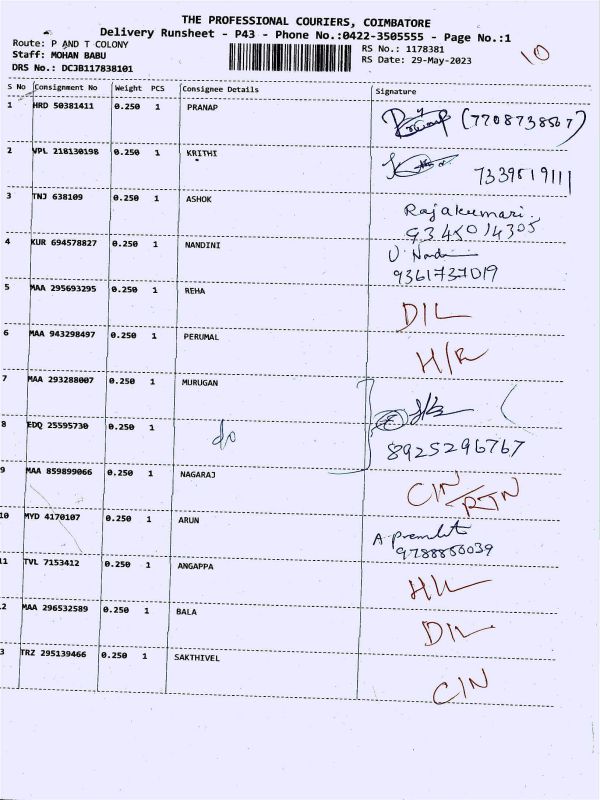 THE PROFESSIONAL COURIERS, COIMBATORE
Delivery Runsheet - P43 - Phone No.:0422-3505555 - Page No.:1
Route: P AND T COLONY
Staff: MOHAN BABU
DRS No.: DCJB117838101
RS No.: 1178381
RS Date: 29-May-2023
10
S No Consignment No Weight PCS Consignee Details Signature
1 HRD 50381411 0.250 1 PRANAP (7708738507)
2 VPL 218130198 0.250 1 KRITHI
7339519111
3 TNJ 638109 0.250 1 ASHOK Rajakumari
9345014305
4 KUR 694578827 0.250 1 NANDINI
9361737019
5 MAA 295693295 0.250 1 REHA D/L
6 MAA 943298497 0.250 1 PERUMAL H/R
7 MAA 293288007 0.250 1 MURUGAN
8 EDQ 25595730 0.250 1 do
8925296767
9 MAA 859899066 0.250 1 NAGARAJ C/N RTN
10 MYD 4170107 0.250 1 ARUN
9788850039
11 TVL 7153412 0.250 1 ANGAPPA H/L
2 MAA 296532589 0.250 1 BALA D/L
3 TRZ 295139466 0.250 1 SAKTHIVEL C/N